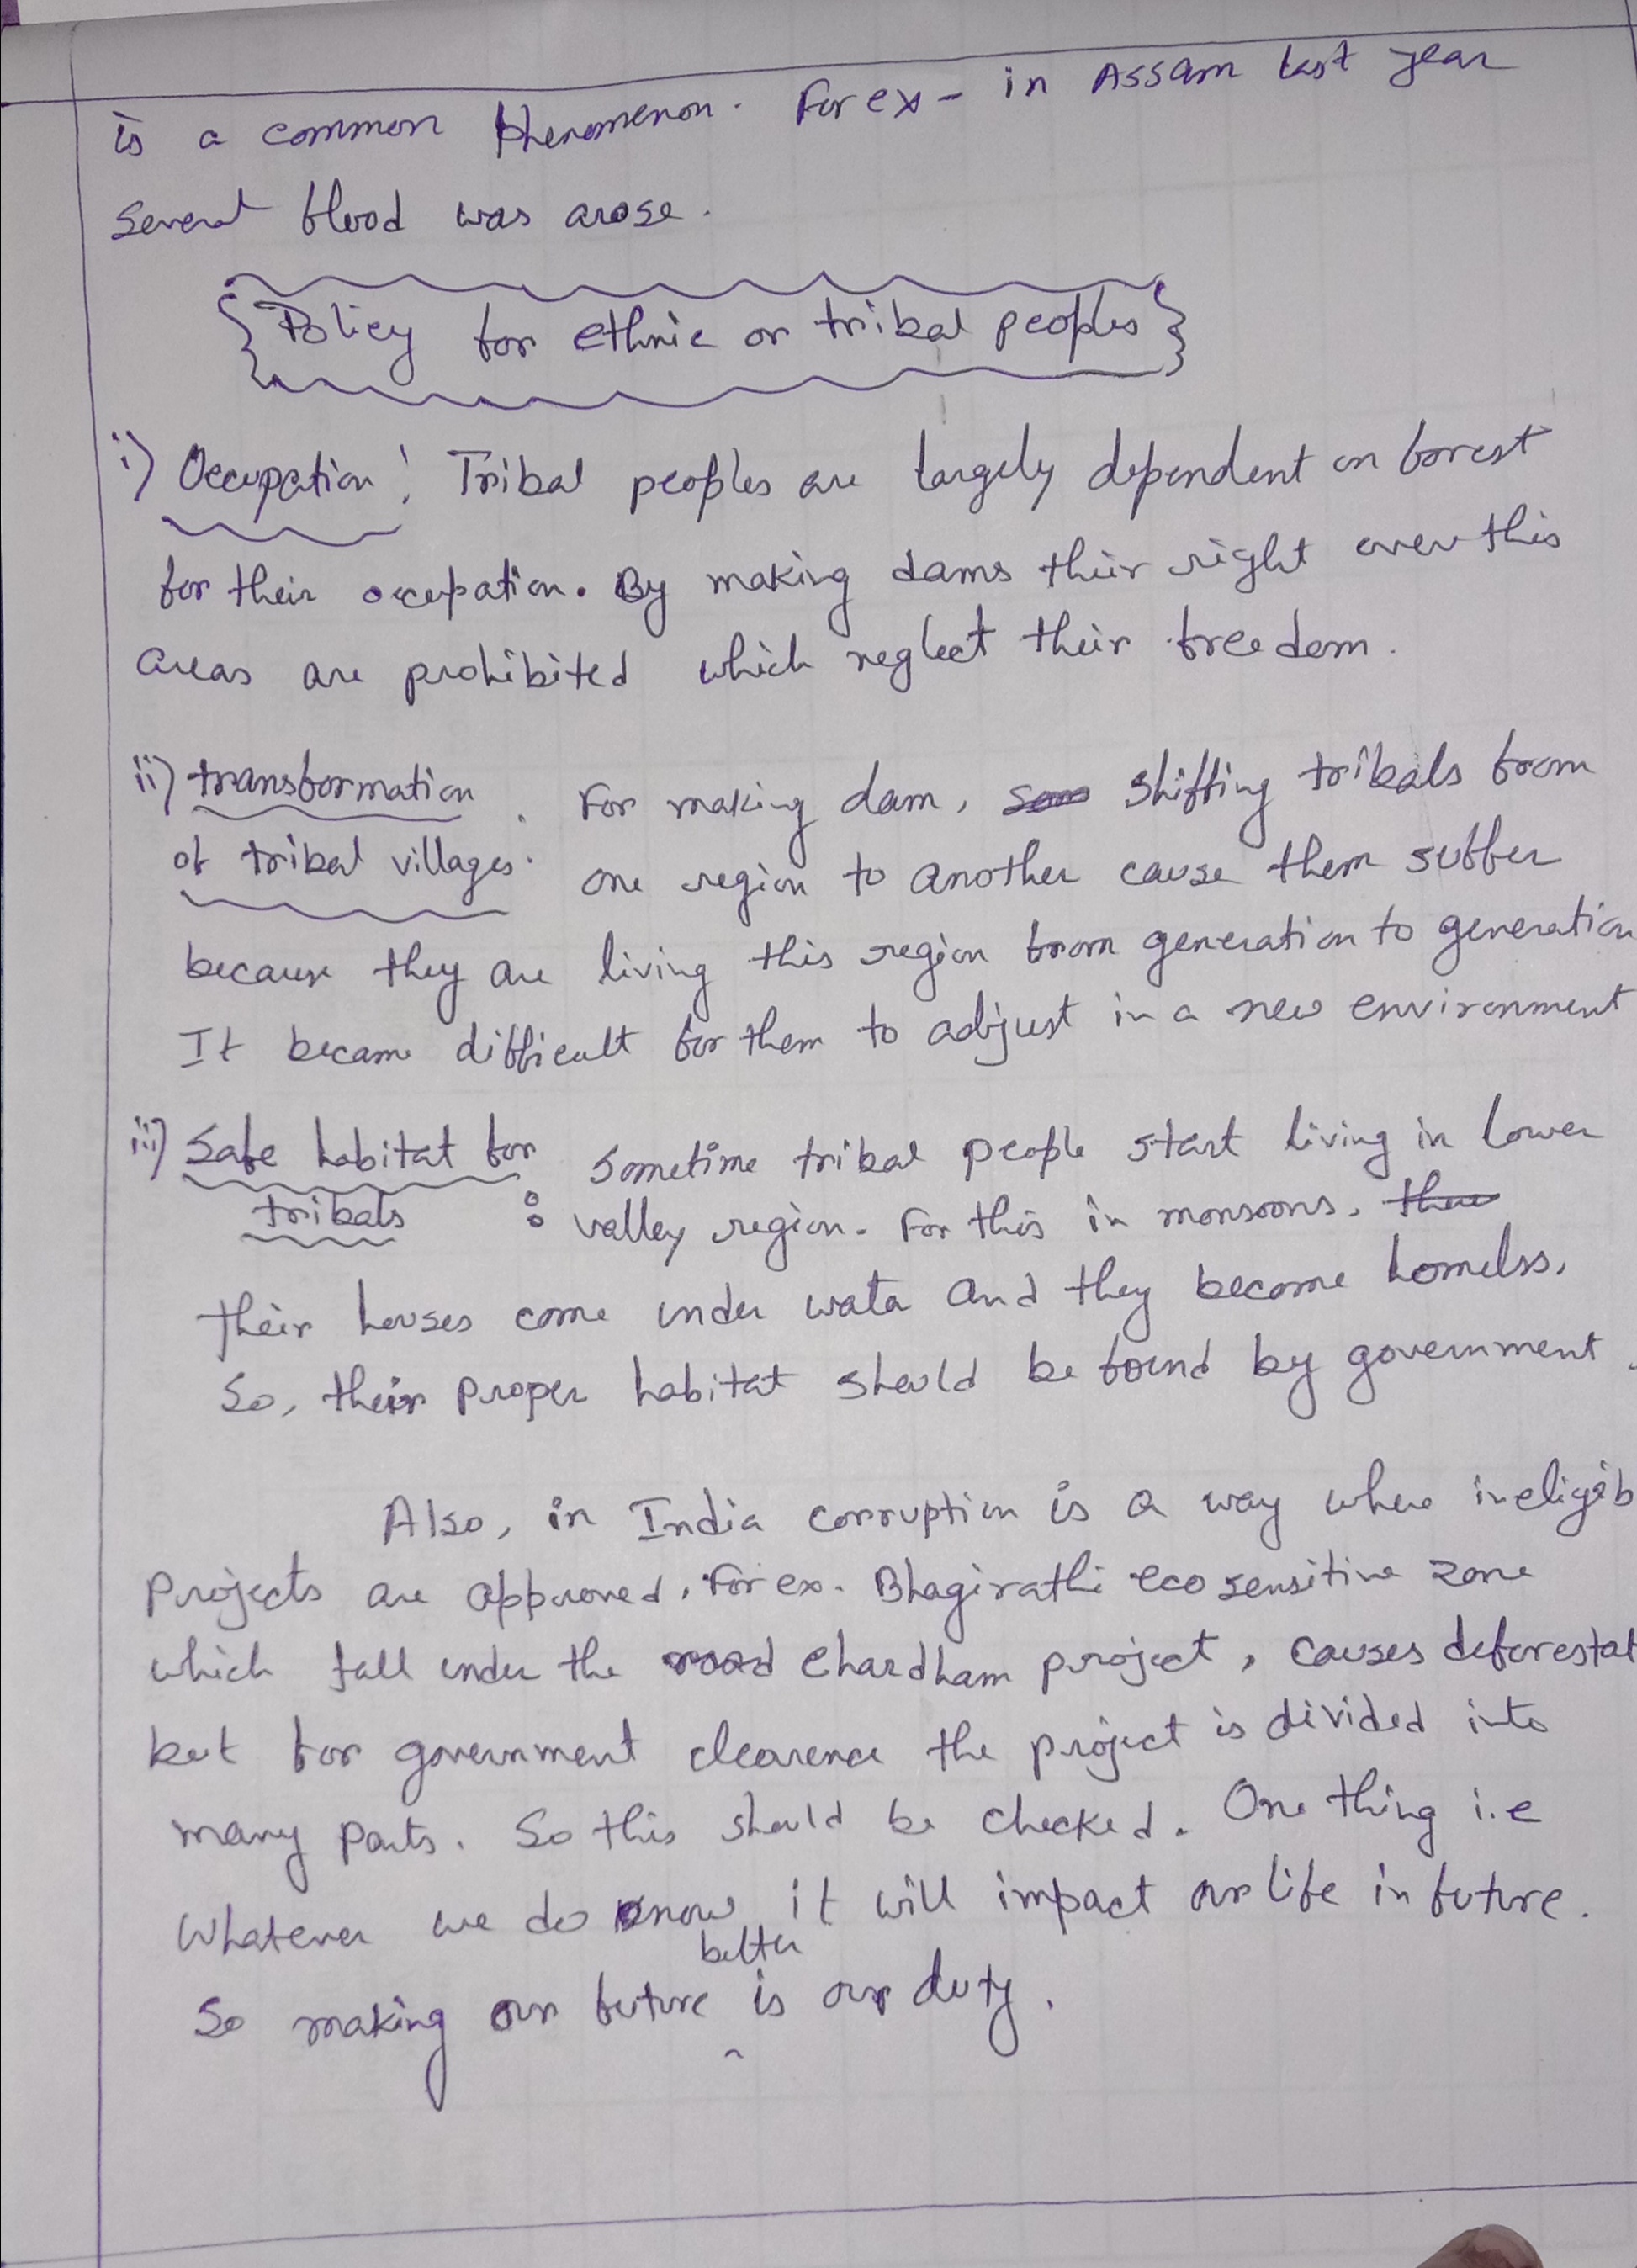 is a common phenomenon. For ex - in Assam last year
Several flood was arose.
Policy for ethnic or tribal peoples
i) Occupation : Tribal peoples are largely dependent on forest
for their occupation. By making dams their right over this
areas are prohibited which neglect their freedom.
ii) transformation . For making dam, shifting tribals from
of tribal villages. one region to another cause them suffer
because they are living this region from generation to generation
It became difficult for them to adjust in a new environment
iii) Safe habitat for Sometime tribal people start living in lower
tribals : valley region. For this in monsoons,
their houses come under wate and they become homelss.
So, their proper habitat should be found by government.
Also, in India corruption is a way where ineligib
projects are approved. For ex. Bhagirathi eco sensitive zone
which fall under the road chardham project, causes deforestat
but for government clearence the project is divided into
many parts. So this should be checked. One thing i.e
Whatever we do know it will impact our life in future.
better
So making our future is our duty.